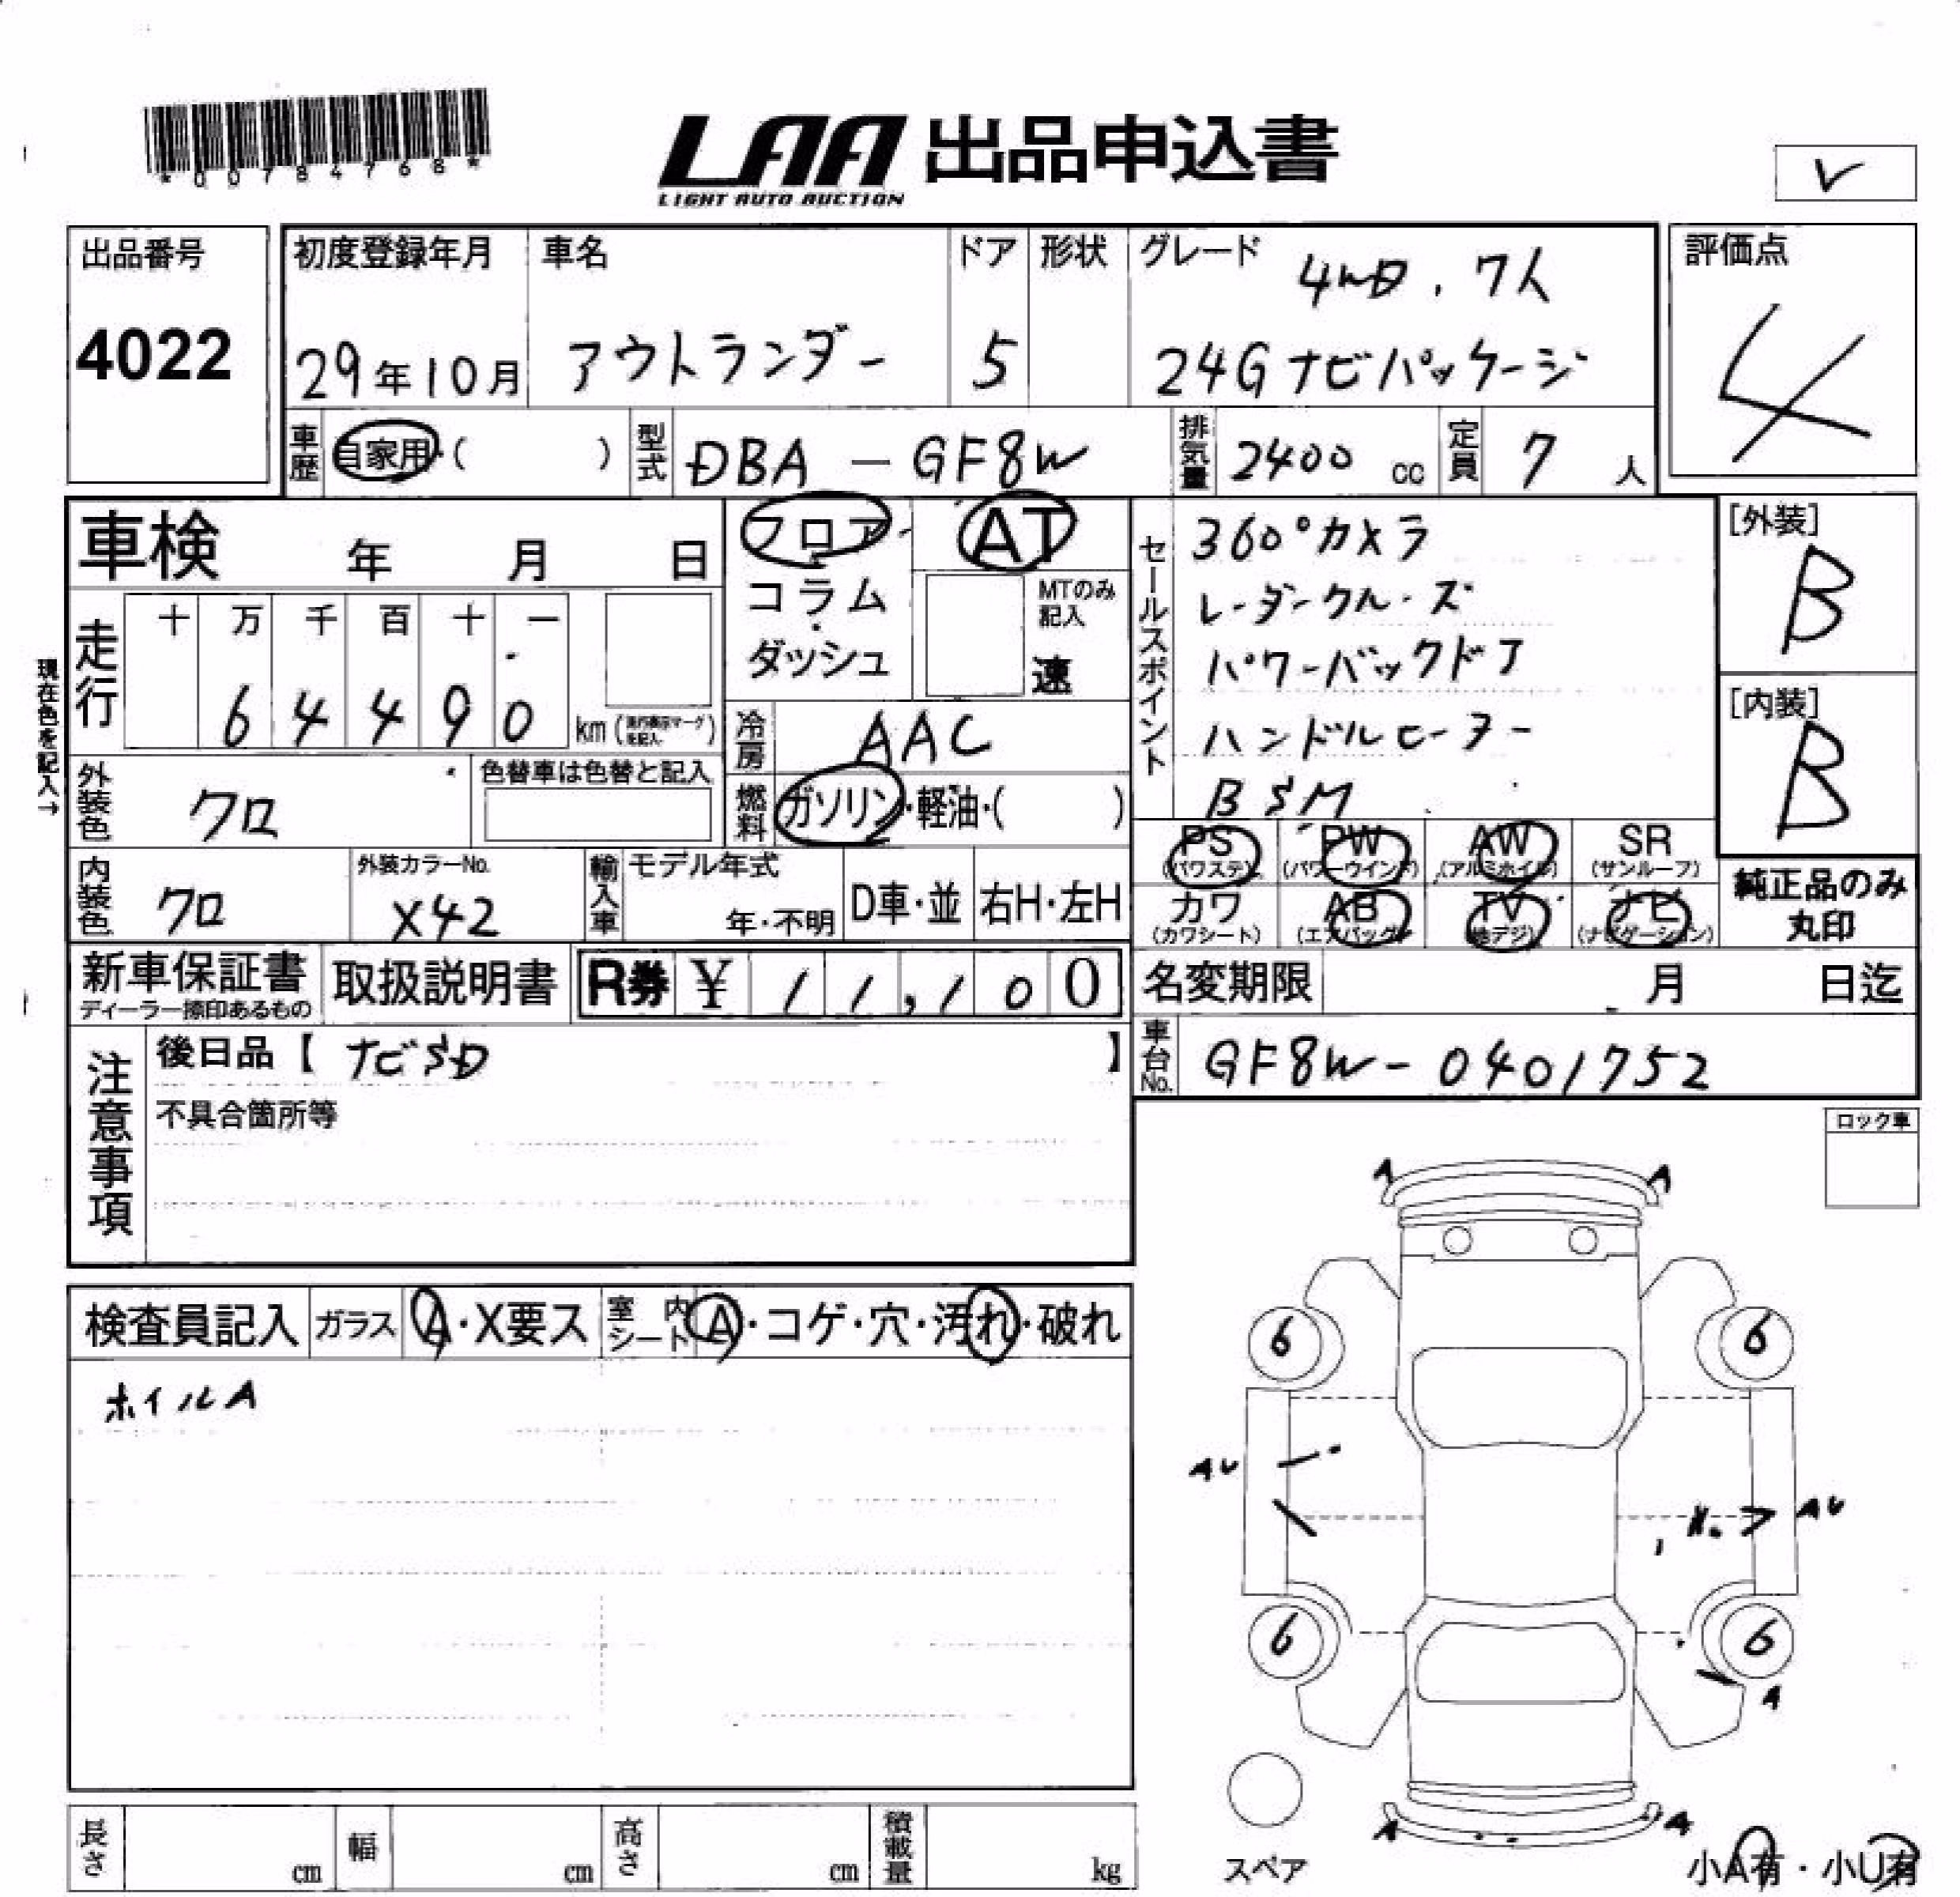 *00784768*
LAA 出品申込書
LIGHT AUTO AUCTION
出品番号
4022
初度登録年月
29年10月
車名
アウトランダー
ドア
5
形状
グレード
4WD、7人
24Gナビパッケージ
評価点
4
車歴 自家用・( )
型式 DBA-GF8W
排気量 2400 cc
定員 7 人
車検 年 月 日
フロア・
コラム・
ダッシュ
AT
MTのみ記入
速
セールスポイント
360°カメラ
レーダークルーズ
パワーバックドア
ハンドルヒーター
BSM
[外装]
B
[内装]
B
現在色を記入→
走行
十 万 千 百 十 一
6 4 4 9 0 km
冷房 AAC
燃料 ガソリン・軽油・( )
外装色 クロ
色替車は色替と記入
内装色 クロ
外装カラーNo.
X42
輸入車
モデル年式
年・不明
D車・並
右H・左H
PS (パワステ)
PW (パワーウインド)
AW (アルミホイル)
SR (サンルーフ)
カワ (カワシート)
AB (エアバッグ)
TV (地デジ)
ナビ (ナビゲーション)
純正品のみ
丸印
新車保証書
ディーラー捺印あるもの
取扱説明書
R券 ¥ 11,100
名変期限 月 日迄
注意事項
後日品【 ナビSD 】
不具合箇所等
車台No. GF8W-0401752
ロック車
検査員記入
ガラス A・X要ス
室内シート A・コゲ・穴・汚れ・破れ
ホイルA
A A
6 6
AU
AU
6 6
A
A A
スペア
小A有・小U有
長さ cm
幅 cm
高さ cm
積載量 kg